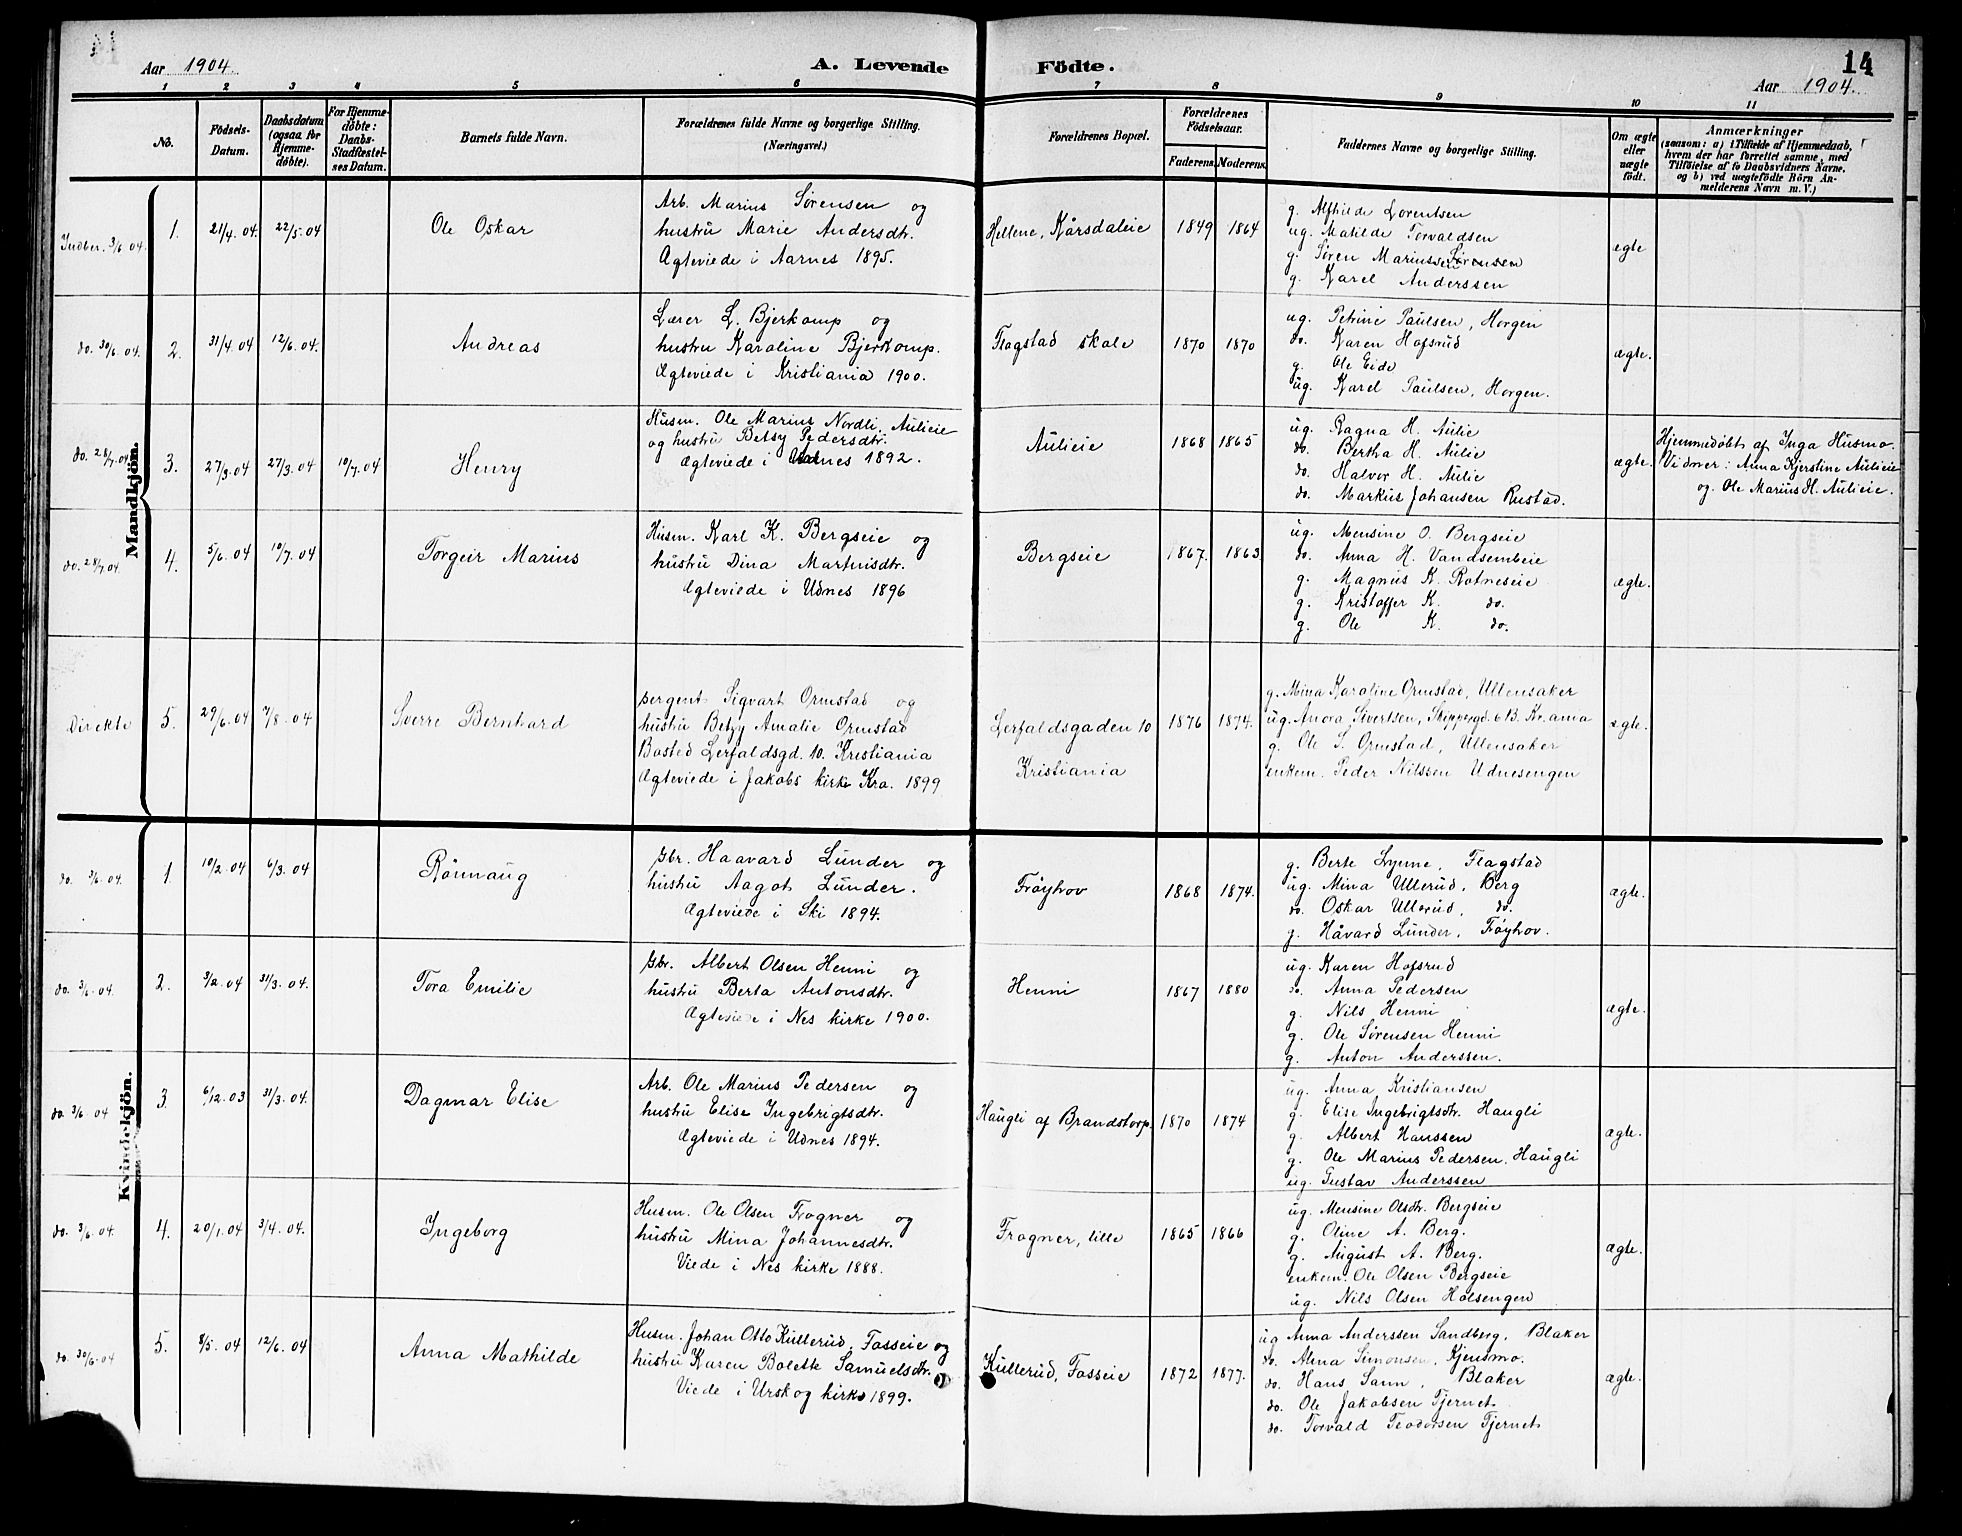 14
Aar 1904.
A. Levende Födte.
Aar 1904.
1 2 3 4 5 6 7 8 9 10 11
No.
Födsels-Datum.
Daabsdatum (ogsaa for Hjemme-döbte).
For Hjemme-döbte: Daabs-Stadfæstel-ses Datum.
Barnets fulde Navn.
Forældrenes fulde Navne og borgerlige Stilling.
(Næringsvei.)
Forældrenes Bopæl.
Forældrenes Födselsaar.
Faderens. Moderens.
Faddernes Navne og borgerlige Stilling.
Om ægte eller uægte födt.
Anmærkninger
(saasom: a) i Tilfælde af Hjemmedaab, hvem der har forrettet samme, med Tilföielse af to Daabsvidners Navne. og b) ved uægtefödte Börn An-melderens Navn m. V.)
Mandkjön.
Indber. 3/6 04. 1. 21/4. 04. 22/5. 04 Ole Oskar
Arb. Marius Sørensen og
hustru Marie Andersdtr.
Ægteviede i Aarnes 1895.
Hellene, Kårsdaleie 1849 1864
g. Alfhilde Lorentsen
ug. Matilde Torvaldsen
g. Søren Mariussen Sørensen
g. Karel Anderssen
ægte
do. 30/6 04. 2. 31/4. 04 12/6. 04. Andreas
Lærer L. Bjerkamp og
hustru Karoline Bjerkamp.
Ægteviede i Kristiania 1900.
Flagstad skole 1870 1870
ug. Petrine Paulsen, Horgen
do. Karen Hofsrud
g. Ole Eide
ug. Karel Paulsen, Horgen.
ægte.
do. 28/7 04 3. 27/3. 04 27/3. 04 10/7. 04 Henry
Husm. Ole Marius Nordli, Aulieie
og hustru Betsy Pedersdtr.
Ægteviede i Udnes 1892.
Aulieie 1868 1865
ug. Ragna H. Aulie
do. Bertha H. Aulie
do. Halvor H. Aulie
do. Markus Johansen Rustad.
ægte.
Hjemmedøbt af Inga Husmo.
Vidner: Anna Kjerstine Aulieie
og. Ole Marius H. Aulieie.
do. 28/7 04. 4. 5/6. 04 10/7. 04 Torgeir Marius
Husm. Karl K. Bergseie og
hustru Dina Martinisdtr.
Ægteviede i Udnes 1896
Bergseie 1867. 1863
ug. Mensine O. Bergseie
do. Anna H. Vandsembeie
g. Magnus K. Rotneseie
g. Kristoffer K. do.
g. Ole K. do.
ægte.
Direkte 5. 29/6. 04 7/8. 04 Sverre Bernhard
Sergent Sigvart Ormstad og
hustru Betzy Amalie Ormstad
Bosted Lerfaldsgd. 10. Kristiania
Ægteviede i Jakobs kirke Kra. 1899
Lerfaldsgaden 10
Kristiania
1876 1874.
g. Mina Karoline Ormstad, Ullensaker
ug. Anora Sivertsen, Skippergd. 6 B. Kr.ania
g. Ole S. Ormstad, Ullensaker
enkem. Peder Nilssen Udnesengen
ægte.
Kvindekjön.
do. 3/6. 04. 1. 10/2. 04 6/3. 04 Rönnaug
Gbr. Haavard Lunder og
hustru Aagot Lunder.
Ægteviede i Ski 1894.
Frøyhov 1868 1874.
g. Berte Lynne, Flagstad
ug. Mina Ullerud, Berg
do. Oskar Ullerud, do.
g. Håvard Lunder, Frøyhov.
ægte.
do. 3/6. 04. 2. 3/2. 04 31/3. 04. Tora Emilie
Gbr. Albert Olsen Henni og
hustru Berta Antonsdtr.
Ægteviede i Nes kirke 1900.
Henni 1867 1880
ug. Karen Hofsrud
do. Anna Pedersen
g. Nils Henni
g. Ole Sørensen Henni
g. Anton Anderssen.
ægte.
do. 3/6. 04 3. 6/12. 03 31/3. 04. Dagmar Elise
Arb. Ole Marius Pedersen og
hustru Elise Ingebrigtsdtr.
Ægteviede i Udnes 1894.
Haugli af Brandstorp. 1870 1874
ug. Anna Kristiansen
g. Elise Ingebrigtsdtr. Haugli
g. Albert Hanssen
g. Ole Marius Pedersen, Haugli
ug. Gustav Anderssen
ægte.
do. 3/6. 04. 4. 20/1. 04 3/4. 04. Ingeborg
Husm. Ole Olsen Frogner og
hustru Mina Johannesdtr.
Viede i Nes kirke 1888.
Frogner, lille 1865 1866
ug. Mensine Olsdtr. Bergseie
g. Oline A. Berg.
g. August A. Berg.
enkem. Ole Olsen Bergseie
ug. Nils Olsen Holsengen
ægte.
do. 30/6. 04 5. 8/5. 04 12/6. 04 Anna Mathilde
Husm. Johan Otto Kullerud, Fosseie og
hustru Karen Bolette Samuelsdtr.
Viede i Urskog kirke 1899.
Kullerud, Fosseie 1872 1877.
ug Anna Anderssen Sandberg, Blaker
do. Alma Simonsen, Kjensmo.
do. Hans Sann, Blaker
do. Ole Jakobsen Tjernet
do. Torvald Teodorsen Tjernet
ægte.